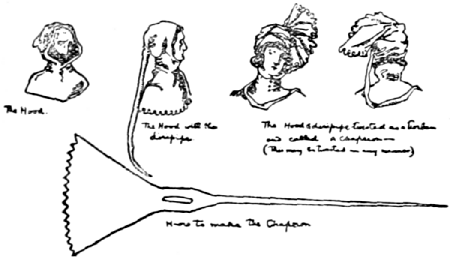 The Hood.
The Hood with the
liripipe
The Hood & liripipe twisted as a Turban
and called a Chaperon —
(This may be twisted in any manner)
How to make the Chaperon